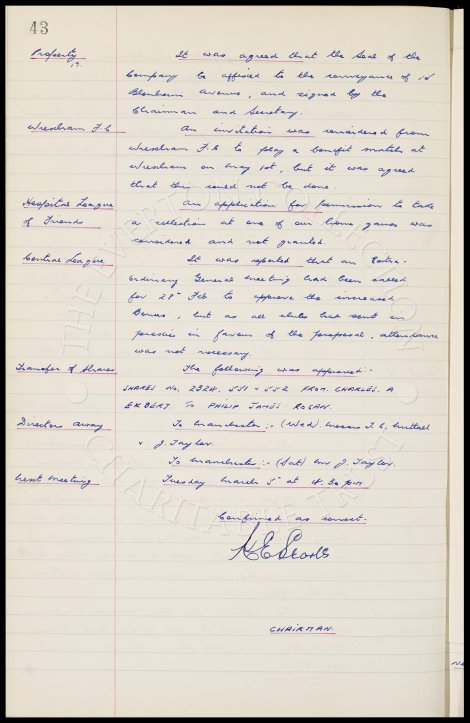 43
Property
17.
It was agreed that the Seal of the
Company be affixed to the conveyance of 16
Blenheim Avenue, and signed by the
Chairman and Secretary.
Wrexham F.C
An invitation was considered from
Wrexham F.C to play a benefit match at
Wrexham on May 1st, but it was agreed
that this could not be done.
Hospital League
of Friends
An application for permission to take
a collection at one of our home games was
considered and not granted.
Central League
It was reported that an Extra-
ordinary General Meeting had been called
for 28th Feb to approve the increased
Bonus, but as all clubs had sent in
proxies in favour of the proposal, attendance
was not necessary.
Transfer of Shares
The following was approved:-
SHARES No. 2324, 551 & 552 FROM CHARLES. A
EKBERT To PHILIP JAMES ROGAN.
Directors away
To Manchester:- (Wed) Messrs T.C. Nuttall
& J. Taylor.
To Manchester:- (Sat) Mr J. Taylor.
Next Meeting
Tuesday March 5th at 4.30pm
Confirmed as correct.
CHAIRMAN.
THE EVERTON COLLECTION
CHARITABLE TRUST